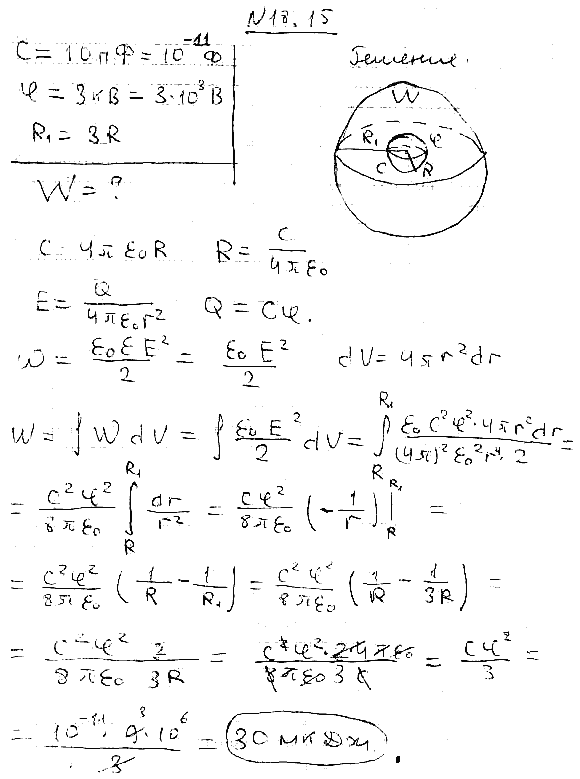 N18.15
C = 10пФ = 10^-11 Ф
φ = 3кВ = 3·10^3 В
R₁ = 3R
W = ?
Решение.
W
R₁ φ
C R
C = 4πε₀R R = C/(4πε₀)
E = Q/(4πε₀r²) Q = Cφ.
w = ε₀εE²/2 = ε₀E²/2 dV = 4πr²dr
W = ∫ W dV = ∫ ε₀E²/2 dV = ∫_R^R₁ ε₀C²φ²·4πr²dr/((4π)²ε₀²r⁴·2) =
= C²φ²/(8πε₀) ∫_R^R₁ dr/r² = Cφ²/(8πε₀) (-1/r)|_R^R₁ =
= C²φ²/(8πε₀) (1/R - 1/R₁) = C²φ²/(8πε₀) (1/R - 1/3R) =
= C²φ² 2/(8πε₀ 3R) = C²φ²·2·4πε₀/(8πε₀ 3C) = Cφ²/3 =
= 10^-11 · 9^3 · 10^6/3 = 30 мкДж.